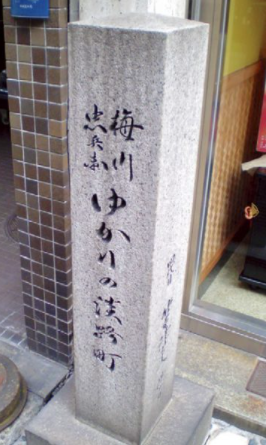 梅川
忠兵衛
ゆかりの淡路町